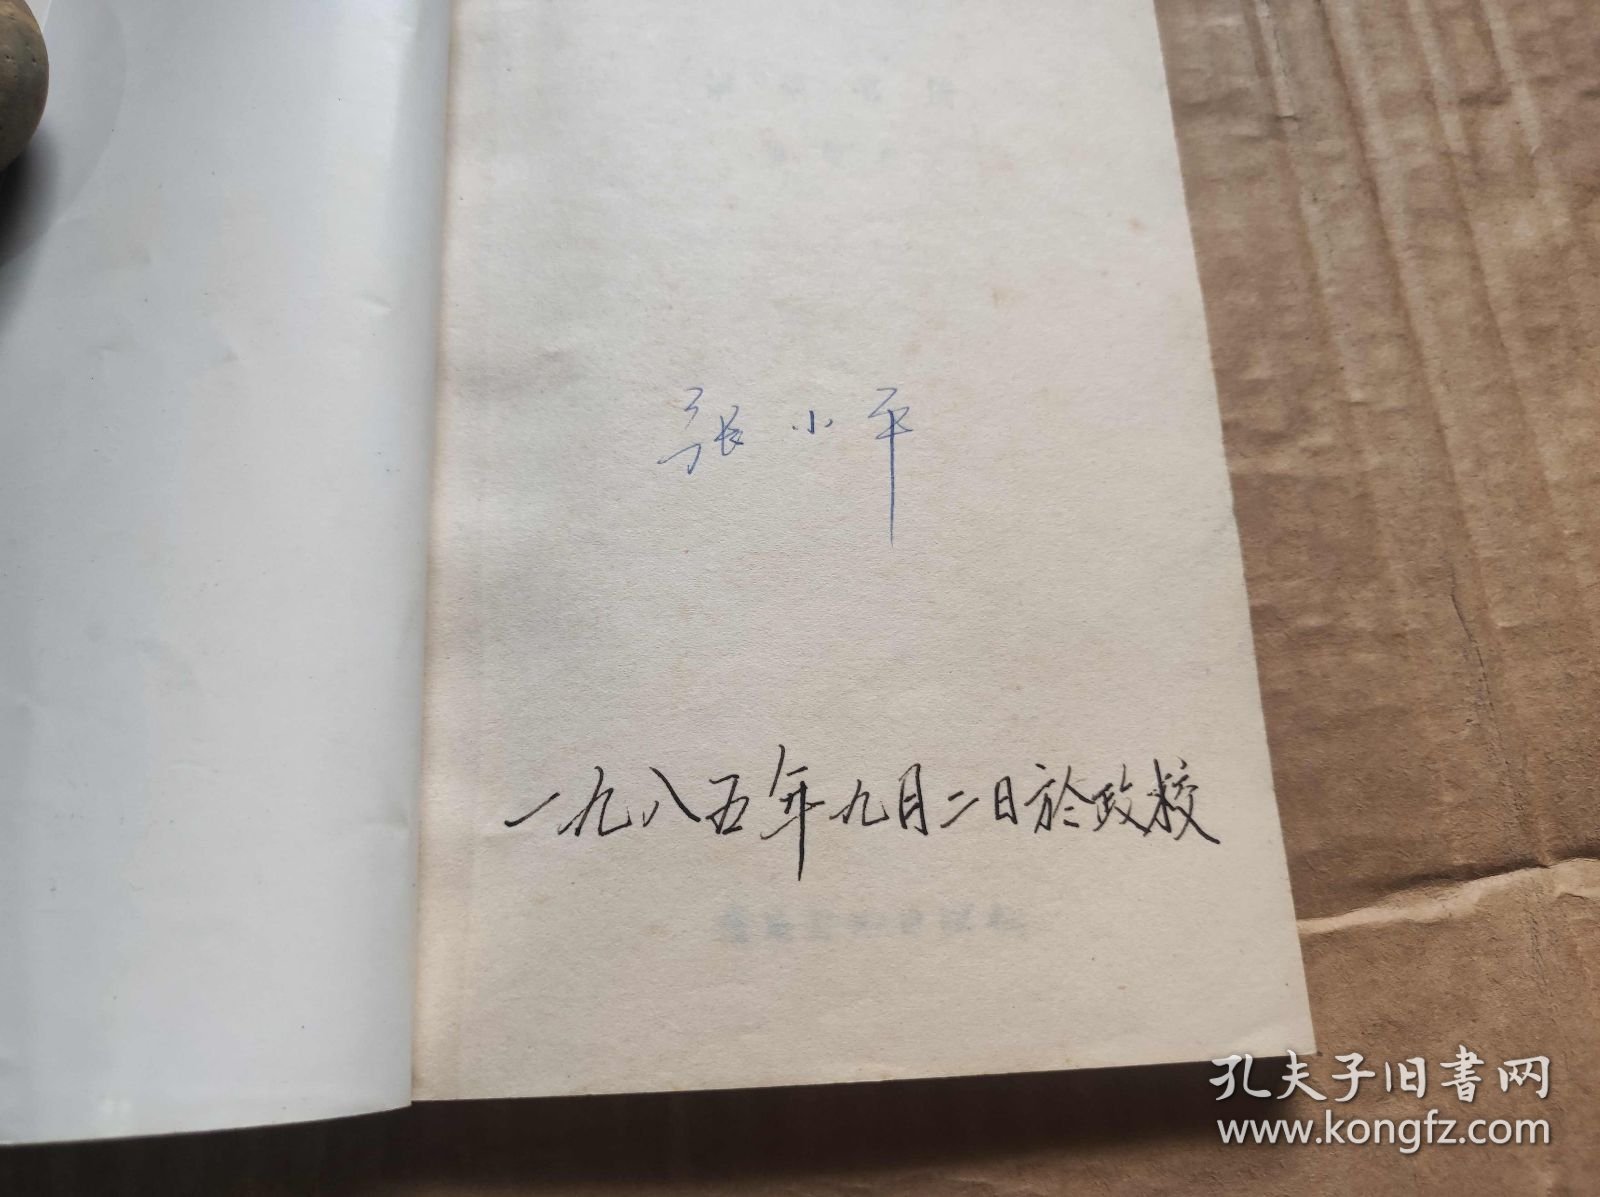 张小平
一九八五年九月二日於政校
孔夫子旧書网
www.kongfz.com